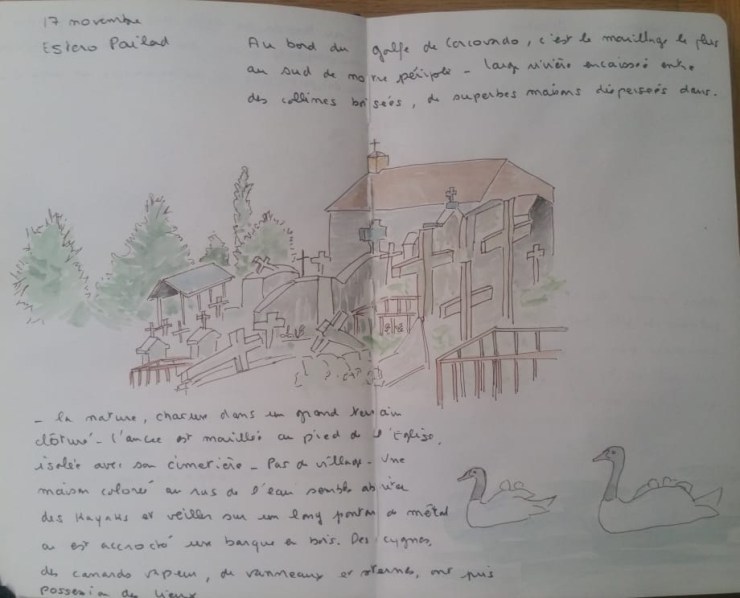 17 novembre
Estero Pailad
Au bord du golfe de Corcovado, c'est le mouillage le plus
au sud de notre périple - large rivière encaissée entre
des collines boisées, de superbes maisons dispersées dans
- la nature, chacune dans un grand terrain
clôturé - l'ancre est mouillée au pied de l'Eglise,
isolée avec son cimetière - Pas de village - Une
maison colorée au ras de l'eau semble abriter
des Kayaks et veiller sur un long ponton de métal
où est accroché une barque en bois. Des cygnes,
des canards vapeur, de vanneaux et sternes, ont pris
possession des lieux